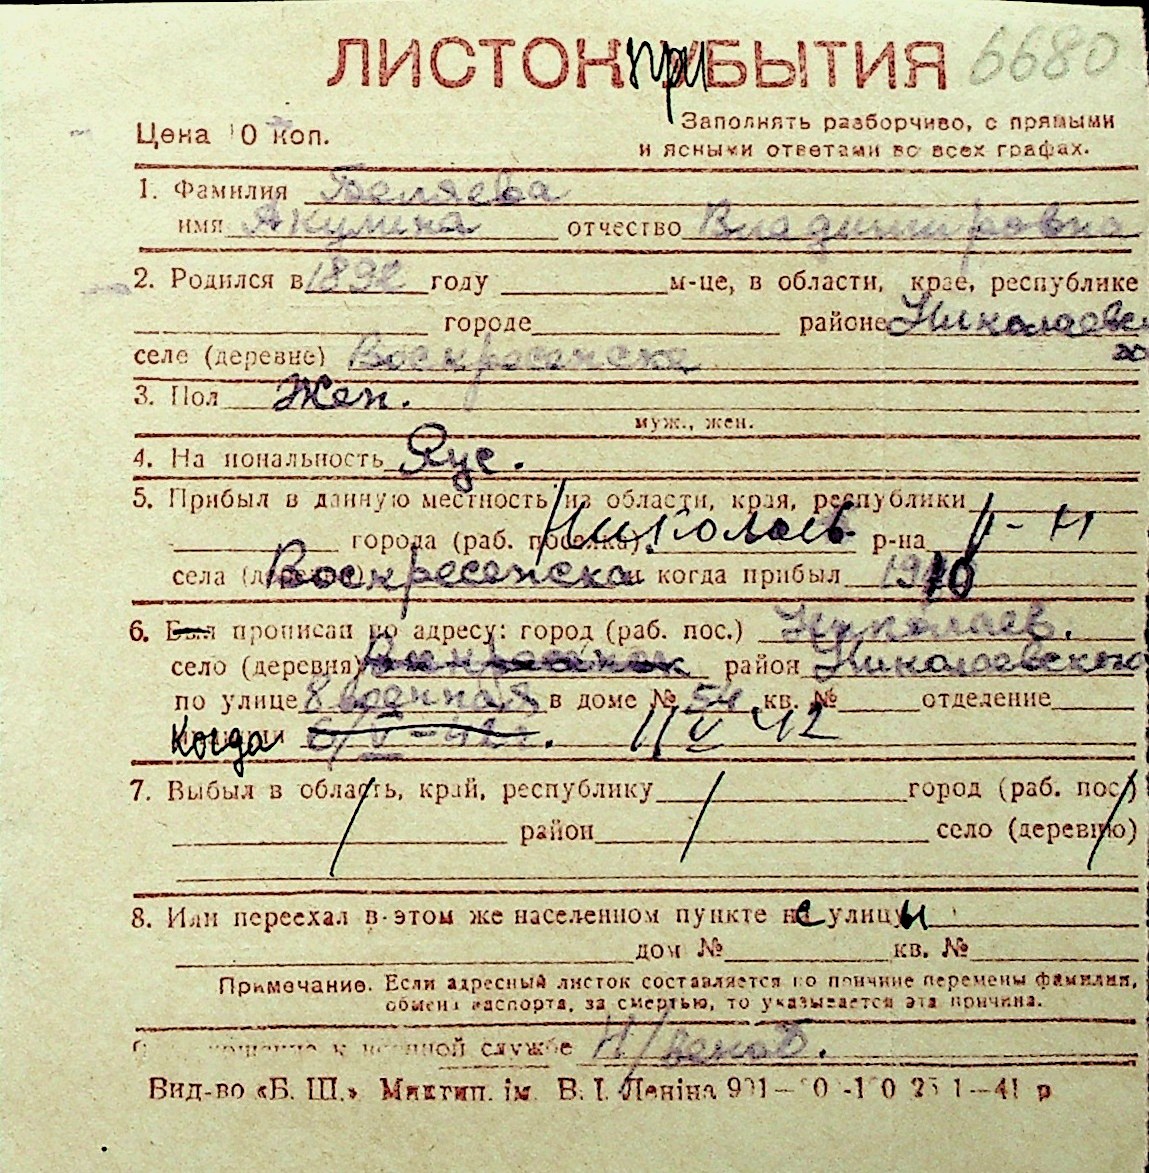 ЛИСТОК прибЫТИЯ 6680
Цена 10 коп.
Заполнять разборчиво, с прямыми
и ясными ответами во всех графах.
1. Фамилия Беляева
имя Акулина отчество Владимировна
2. Родился в 1892 году м-це, в области, крае, республике
городе районе Николаевск
селе (деревне) Воскресенске
3. Пол Жен.
муж., жен.
4. Национальность Рус.
5. Прибыл в данную местность из области, края, республики
города (раб. поселка) Николаев р-на
села (деревни) Воскресенска и когда прибыл 1910
6. Был прописан по адресу: город (раб. пос.) Николаев.
село (деревня) район Николаевского
по улице 8 военная в доме № 54 кв. № отделение
когда 6/V-42г. 11 V 42
7. Выбыл в область, край, республику город (раб. пос.)
район село (деревню)
8. Или переехал в этом же населенном пункте с улицы
дом № кв. №
Примечание. Если адресный листок составляется по причине перемены фамилии,
обмена паспорта, за смертью, то указывается эта причина.
Отношение к военной службе Н/веноб.
Вид-во «Б. Ш.» Миктип. ім. В. І. Леніна